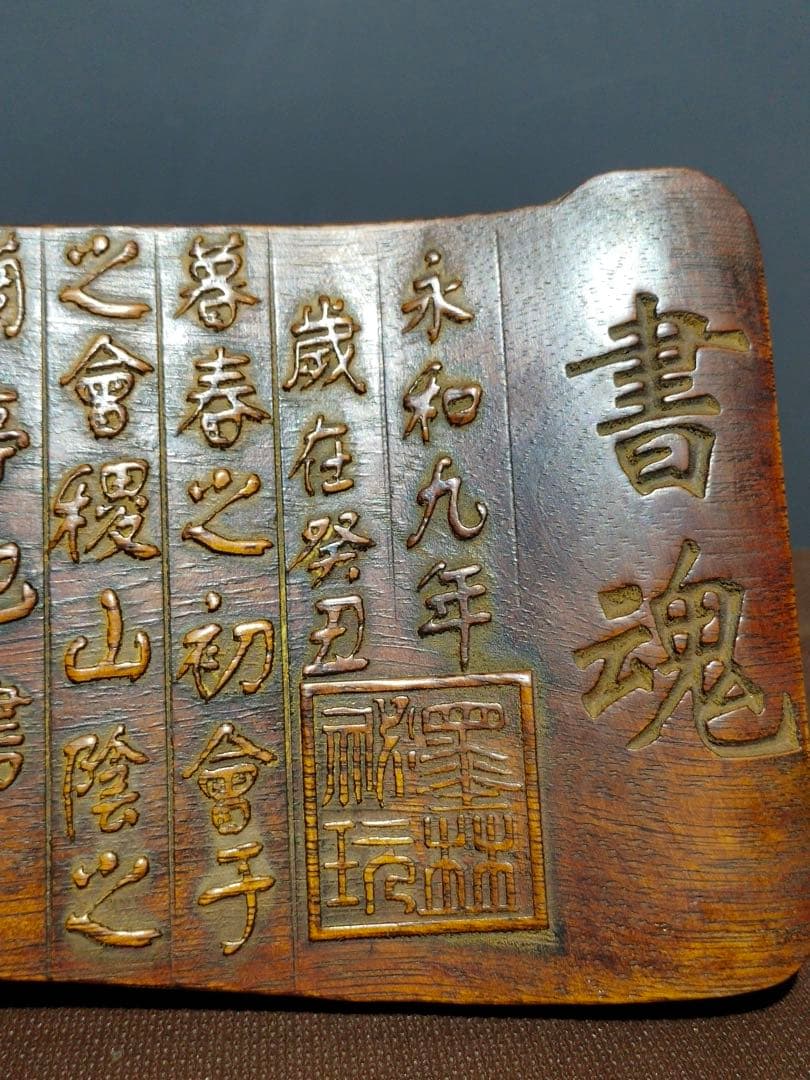 書魂
永和九年
墨林
祕玩
歲在癸丑
暮春之初會于
之會稷山陰之